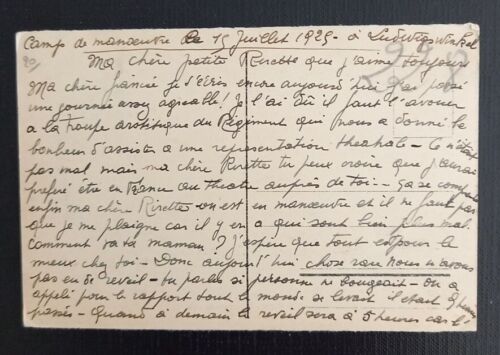 Camp de manœuvre le 15 Juillet 1929 - à Ludwigswinkel
Ma chère petite Rirette que j'aime toujours
Ma chère fiancée je t'écris encore aujourd'hui j'ai passé
une journée assez agréable! je l'ai dû il faut l'avouer
a la troupe artistique du Régiment qui nous a donné le
bonheur d'assister a une representation theatrale - Ce n'était
pas mal mais ma chère Rirette tu peux croire que j'aurai
preferé être en France au theatre auprès de toi - Ça se comprend
enfin ma chère Rirette on est en manœuvre et il ne faut pas
que je me plaigne car il y en a qui sont bien plus mal.
Comment va ta maman? J'espère que tout est pour le
mieux chez toi - Donc aujourd'hui chose rare nous n'avons
pas eu de reveil - tu parles si personne ne bougeait - On a
appelé pour le rapport tout le monde se levait il etait 9 heures
passés - Quand à demain le reveil sera à 5 heures car l'